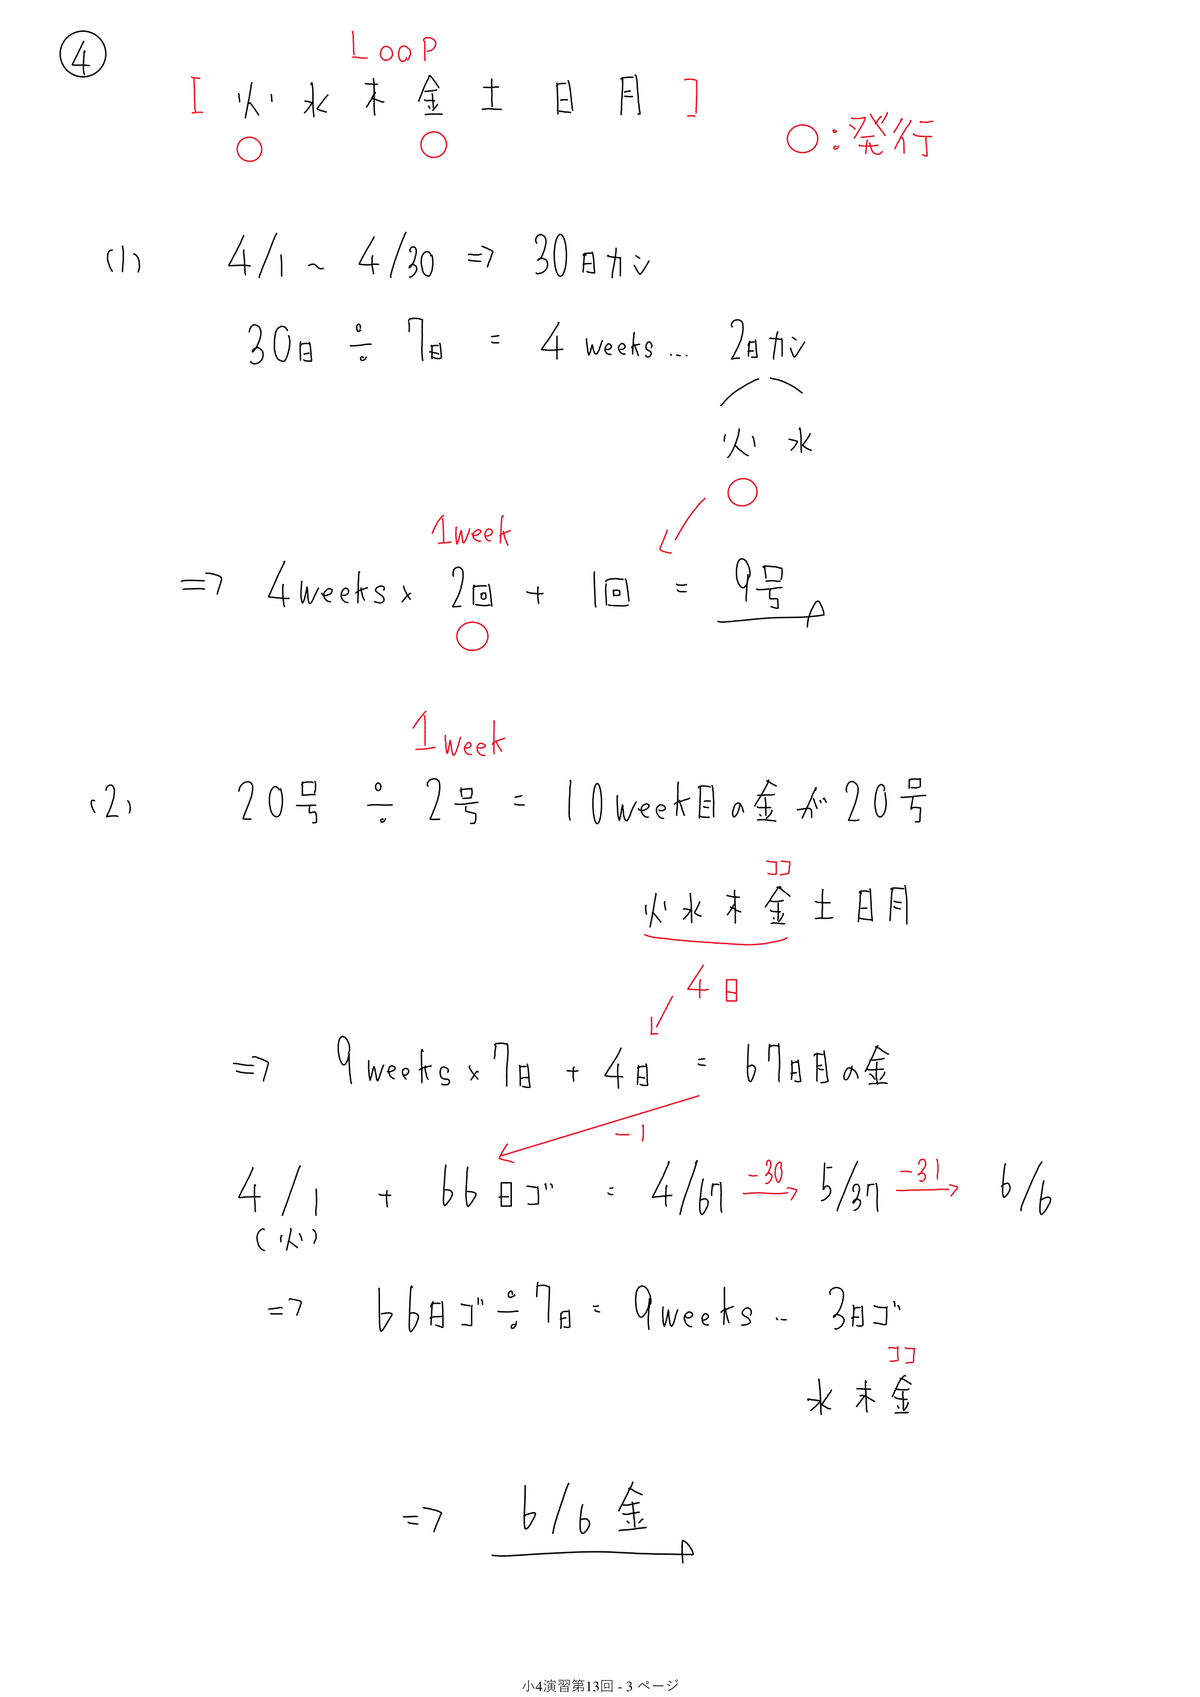 ④
LOOP
[ 火 水 木 金 土 日 月 ]
○ ○
○:発行
(1) 4/1 ~ 4/30 => 30日カン
30日 ÷ 7日 = 4 weeks … 2日カン
火 水
○
1week
=> 4weeks × 2回 + 1回 = 9号
○
1week
(2) 20号 ÷ 2号 = 10week目の金が20号
ココ
火 水 木 金 土 日 月
4日
=> 9weeks × 7日 + 4日 = 67日目の金
-1
4/1 + 66日ゴ = 4/67 -30 5/37 -31 6/6
(火)
=> 66日ゴ ÷ 7日 = 9weeks … 3日ゴ
ココ
水 木 金
=> 6/6 金
小4演習第13回 - 3 ページ